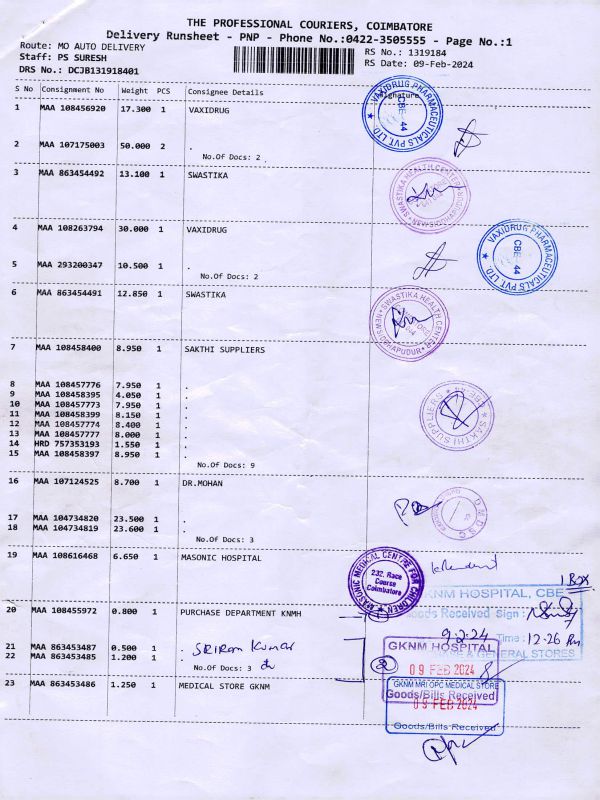 THE PROFESSIONAL COURIERS, COIMBATORE
Delivery Runsheet - PNP - Phone No.:0422-3505555 - Page No.:1
Route: MO AUTO DELIVERY RS No.: 1319184
Staff: PS SURESH RS Date: 09-Feb-2024
DRS No.: DCJB131918401
S No Consignment No Weight PCS Consignee Details Signature
1 MAA 108456920 17.300 1 VAXIDRUG
VAXIDRUG PHARMACEUTICALS PVT. LTD.
CBE 44
2 MAA 107175003 50.000 2 .
No.Of Docs: 2
3 MAA 863454492 13.100 1 SWASTIKA
SWASTIKA HEALTH CENTER
4 MAA 108263794 30.000 1 VAXIDRUG
VAXIDRUG PHARMACEUTICALS PVT. LTD.
CBE 44
5 MAA 293200347 10.500 1 .
No.Of Docs: 2
6 MAA 863454491 12.850 1 SWASTIKA
SWASTIKA HEALTH CENTER
7 MAA 108458400 8.950 1 SAKTHI SUPPLIERS
8 MAA 108457776 7.950 1 .
9 MAA 108458395 4.050 1 .
10 MAA 108457773 7.950 1 .
11 MAA 108458399 8.150 1 .
12 MAA 108457774 8.400 1 .
13 MAA 108457777 8.000 1 .
14 HRD 757353193 1.550 1 .
15 MAA 108458397 8.950 1 .
SAKTHI SUPPLIERS
No.Of Docs: 9
16 MAA 107124525 8.700 1 DR.MOHAN
D M D S C
17 MAA 104734820 23.500 1 .
18 MAA 104734819 23.600 1 .
No.Of Docs: 3
19 MAA 108616468 6.650 1 MASONIC HOSPITAL
MASONIC MEDICAL CENTRE FOR CHILDREN
232, Race
Course
Coimbatore
1 Box
20 MAA 108455972 0.800 1 PURCHASE DEPARTMENT KNMH
GKNM HOSPITAL, CBE
Goods Received Sign :
9.2.24 Time : 12-26 Pm
& GENERAL STORES
21 MAA 863453487 0.500 1 . SRIRAM Kumar
22 MAA 863453485 1.200 1 .
No.Of Docs: 3
2
GKNM HOSPITAL
09 FEB 2024
Goods/Bills Received
23 MAA 863453486 1.250 1 MEDICAL STORE GKNM
GKNM MRI OPC MEDICAL STORE
09 FEB 2024
Goods/Bills Received